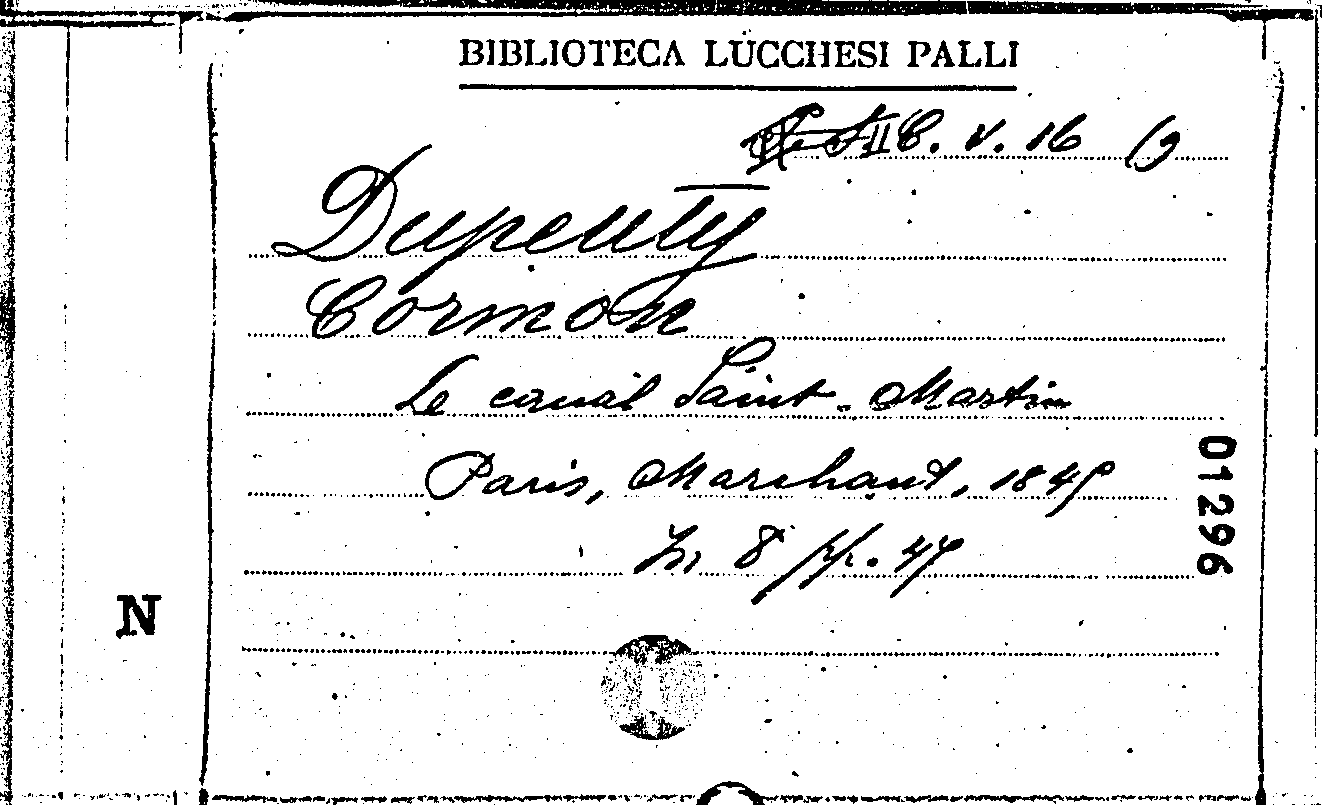 BIBLIOTECA LUCCHESI PALLI
II C. V. 16 (9
Dupeuty
Cormon
Le canal Saint-Martin
Paris, Marchant, 1845
In 8 pp. 47
01296
N